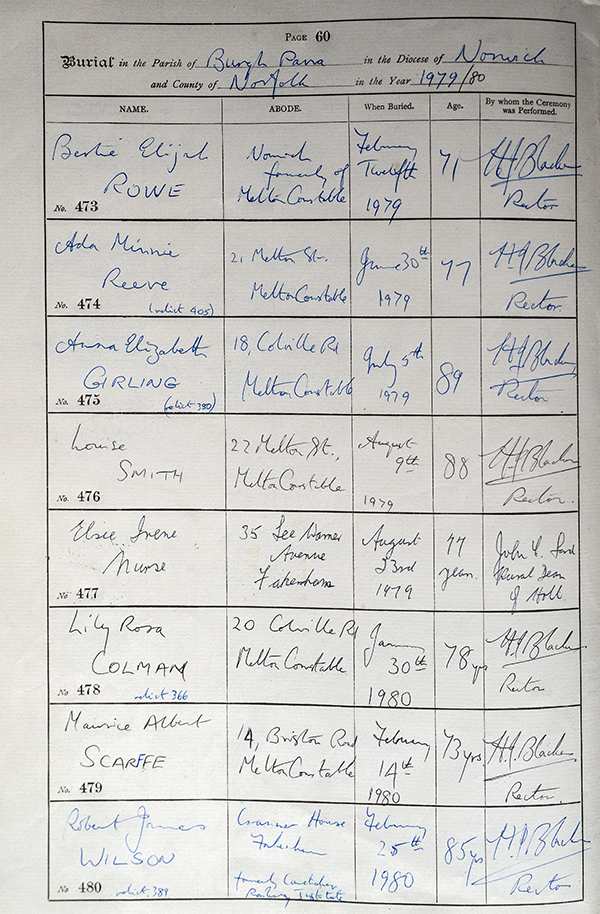 PAGE 60
Burial in the Parish of Burgh Parva in the Diocese of Norwich
and County of Norfolk in the Year 1979/80
NAME. ABODE. When Buried. Age. By whom the Ceremony was Performed.
Bertie Elijah
ROWE
No. 473
Norwich
formerly of
Melton Constable
February
Twelfth
1979
71
H.J. Blacker
Rector
Ada Minnie
Reeve
No. 474 (relict 405)
21 Melton St.
Melton Constable
June 30th
1979
77
H.J. Blacker
Rector.
Anna Elizabeth
GIRLING
No. 475 (relict 380)
18, Colville Rd
Melton Constable
July 5th
1979
89
H.J. Blacker
Rector.
Louise
SMITH
No. 476
22 Melton St.,
Melton Constable
August
9th
1979
88
H.J. Blacker
Rector.
Elsie Irene
Nurse
No. 477
35 Lee Warner
Avenue
Fakenham
August
23rd
1979
77
years.
John
Rural Dean
of Holt.
Lily Rosa
COLMAN
No 478 relict 366
20 Colville Rd
Melton Constable
January
30th
1980
78 yrs
H.J. Blacker
Rector
Maurice Albert
SCARFFE
No. 479
14, Briston Road
Melton Constable
February
14th
1980
73 yrs.
H.J. Blacker
Rector.
Robert James
WILSON
No. 480 relict. 389
Cranmer House
Fakenham
formerly
Railway Institute
February
25th
1980
85 yrs
H.J. Blacker
Rector